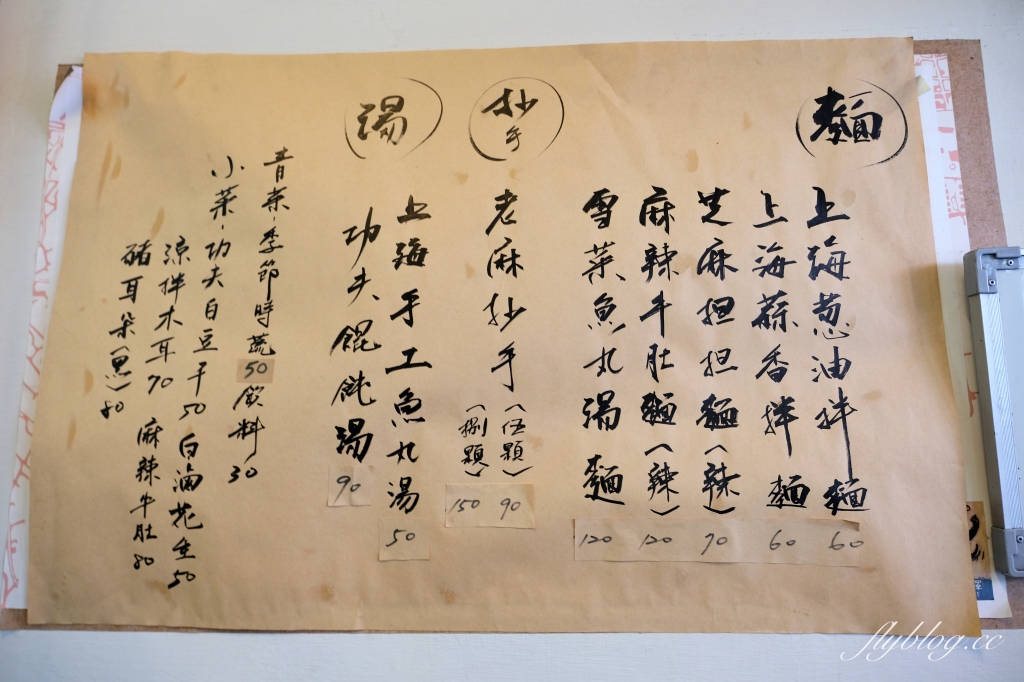 麵
上海葱油拌麵 60
上海蒜香拌麵 60
芝麻担担麵（辣） 70
麻辣牛肚麵（辣） 120
雪菜魚丸湯麵 120
抄手
老麻抄手
（伍顆） 90
（捌顆） 150
湯
上海手工魚丸湯 50
功夫餛飩湯 90
青菜季節時蔬 50 飲料 30
小菜·功夫白豆干 50 白滷花生 50
涼拌木耳 70 麻辣牛肚 80
豬耳朵（熏） 80
flyblog.cc